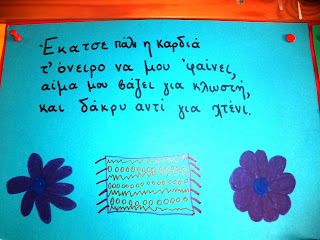 Έκατσε πάλι η καρδιά
τ' όνειρο να μου 'φαίνει,
αίμα μου βάζει για κλωστή,
και δάκρυ αντί για χτένι.